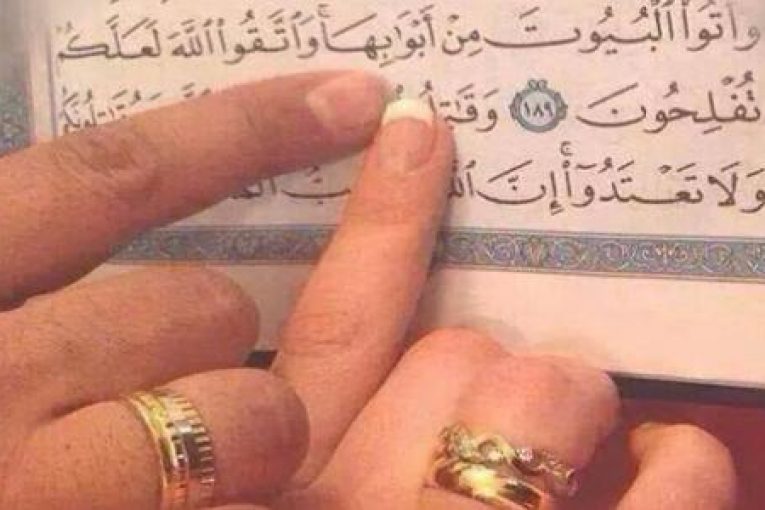 وَأْتُوا۟ ٱلْبُيُوتَ مِنْ أَبْوَٰبِهَا ۚ وَٱتَّقُوا۟ ٱللَّهَ لَعَلَّكُمْ
تُفْلِحُونَ ١٨٩
وَلَا تَعْتَدُوٓا۟ ۚ إِنَّ